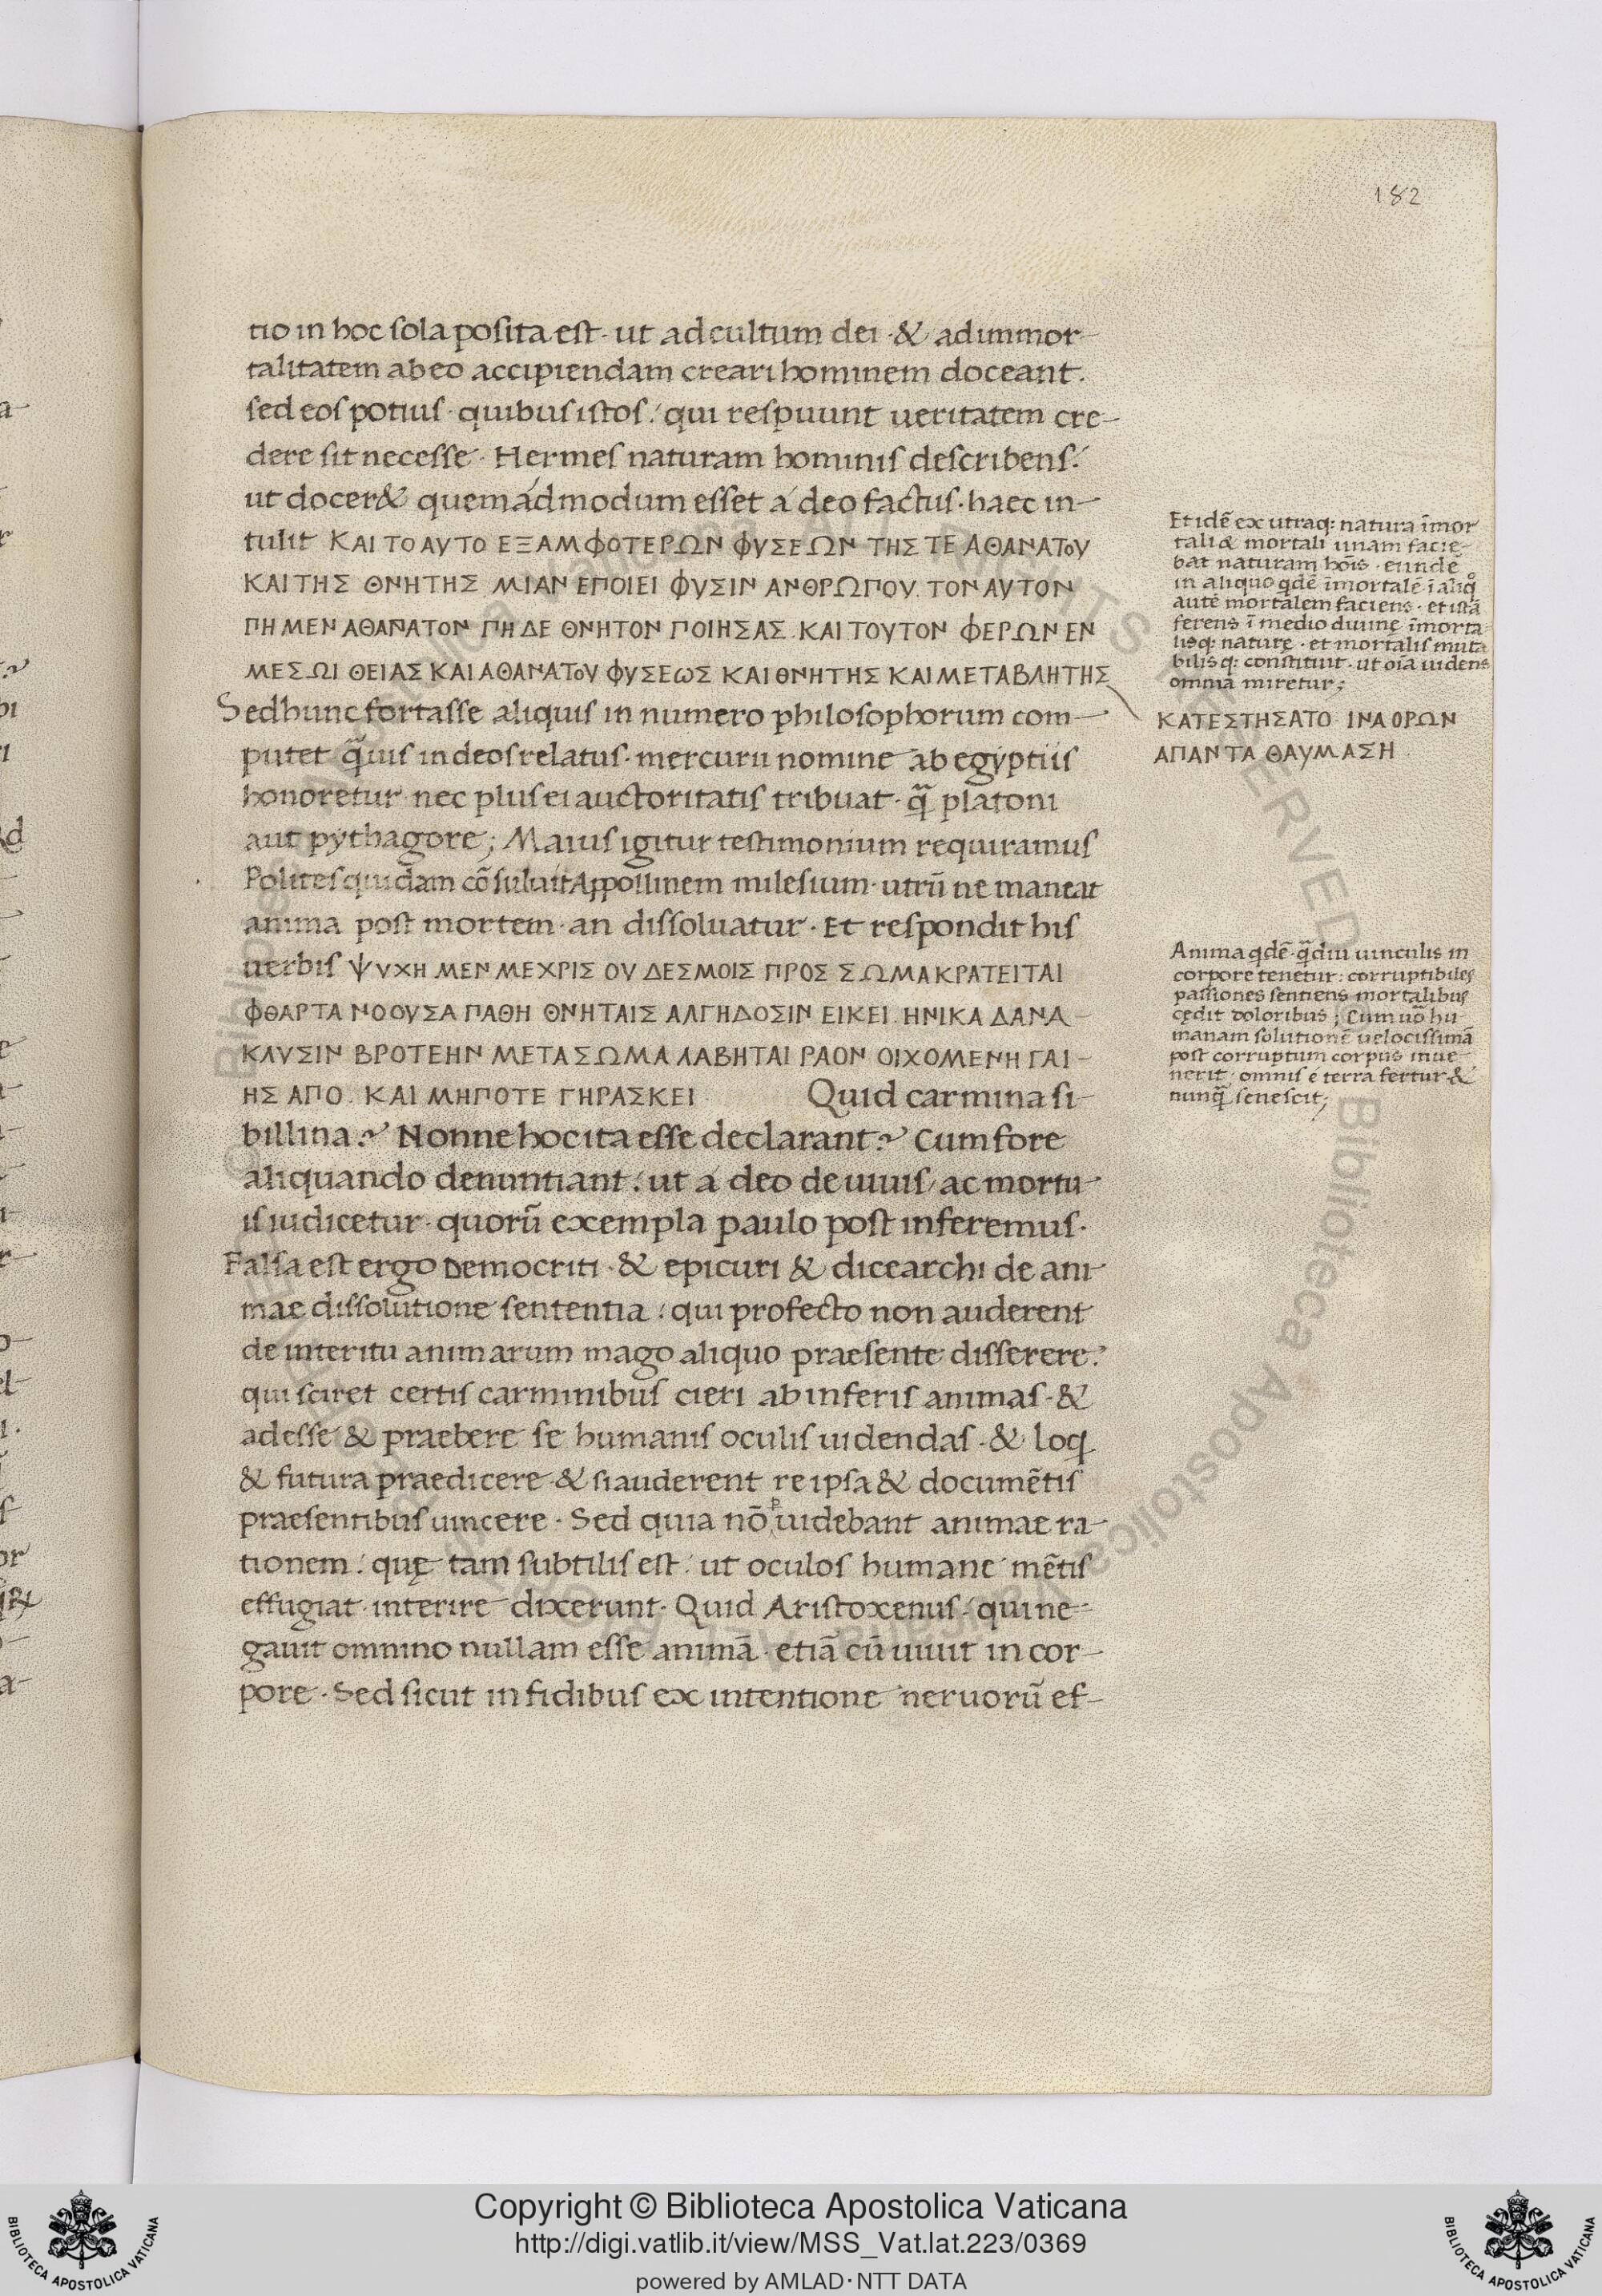 182
tio in hoc sola posita est · ut ad cultum dei · & ad immor-
talitatem ab eo accipiendam creari hominem doceant.
sed eos potius · quibus istos: qui respuunt ueritatem cre-
dere sit necesse · Hermes naturam hominis describens:
ut docer& quemádmodum esset á deo factus · haec in-
tulit ΚΑΙ ΤΟ ΑΥΤΟ ΕΞ ΑΜΦΟΤΕΡΩΝ ΦΥΣΕΩΝ ΤΗΣ ΤΕ ΑΘΑΝΑΤΟΥ
ΚΑΙ ΤΗΣ ΘΝΗΤΗΣ ΜΙΑΝ ΕΠΟΙΕΙ ΦΥΣΙΝ ΑΝΘΡΩΠΟΥ. ΤΟΝ ΑΥΤΟΝ
ΠΗ ΜΕΝ ΑΘΑΝΑΤΟΝ ΠΗ ΔΕ ΘΝΗΤΟΝ ΠΟΙΗΣΑΣ. ΚΑΙ ΤΟΥΤΟΝ ΦΕΡΩΝ ΕΝ
ΜΕΣΩΙ ΘΕΙΑΣ ΚΑΙ ΑΘΑΝΑΤΟΥ ΦΥΣΕΩΣ ΚΑΙ ΘΝΗΤΗΣ ΚΑΙ ΜΕΤΑΒΛΗΤΗΣ
Sed hunc fortasse aliquis in numero philosophorum com-
putet q̃uis in deos relatus · mercurii nomine ab egyptiis
honoretur · nec plus ei auctoritatis tribuat · q̃ platoni
aut pythagore; Maius igitur testimonium requiramus
Polites quidam cõsuluit Appollinem milesium · utrũ ne maneat
anima post mortem · an dissoluatur · Et respondit his
uerbis ΨΥΧΗ ΜΕΝ ΜΕΧΡΙΣ ΟΥ ΔΕΣΜΟΙΣ ΠΡΟΣ ΣΩΜΑ ΚΡΑΤΕΙΤΑΙ
ΦΘΑΡΤΑ ΝΟΟΥΣΑ ΠΑΘΗ ΘΝΗΤΑΙΣ ΑΛΓΗΔΟΣΙΝ ΕΙΚΕΙ. ΗΝΙΚΑ ΔΑΝΑ-
ΚΛΥΣΙΝ ΒΡΟΤΕΗΝ ΜΕΤΑ ΣΩΜΑ ΛΑΒΗΤΑΙ ΡΑΟΝ ΟΙΧΟΜΕΝΗ ΓΑΙ-
ΗΣ ΑΠΟ. ΚΑΙ ΜΗΠΟΤΕ ΓΗΡΑΣΚΕΙ · Quid carmina si-
billina? Nonne hoc ita esse declarant? Cum fore
aliquando denuntiant: ut á deo de uiuis ac mortu-
is iudicetur · quorũ exempla paulo post inferemus ·
Falsa est ergo Democriti · & epicuri & dicearchi de ani-
mae dissolutione sententia: qui profecto non auderent
de interitu animarum mago aliquo praesente disserere:
qui sciret certis carminibus cieri ab inferis animas · &
adesse & praebere se humanis oculis uidendas · & loq
& futura praedicere · & si auderent re ipsa & documẽtis
praesentibus uincere · Sed quia nõ ᵖuidebant animae ra-
tionem: quę tam subtilis est: ut oculos humane mẽtis
effugiat · interire dixerunt · Quid Aristoxenus: qui ne-
gauit omnino nullam esse animã · etiã cũ uiuit in cor-
pore · Sed sicut in fidibus ex intentione neruorũ ef-
Et idẽ ex utraq: natura ĩmor
tali & mortali unam facie-
bat naturam hoĩs · eundẽ
in aliquo qdẽ ĩmortalẽ ĩ aliq̊
autẽ mortalem faciens · et istã
ferens ĩ medio diuinę ĩmorta-
lisq: naturę · et mortalis muta
bilisq: constituit · ut oĩa uidens
omnia miretur;
ΚΑΤΕΣΤΗΣΑΤΟ · ΙΝΑ ΟΡΩΝ
ΑΠΑΝΤΑ ΘΑΥΜΑΣΗ ·
Anima qdẽ · q̃diu uinculis in
corpore tenetur: corruptibiles
passiones sentiens mortalibus
cędit doloribus; Cum uõ hu-
manam solutionẽ uelocissimã
post corruptum corpus inue-
nerit · omnis é terra fertur &
nunq̃ senescit;
Copyright © Biblioteca Apostolica Vaticana
http://digi.vatlib.it/view/MSS_Vat.lat.223/0369
powered by AMLAD·NTT DATA
BIBLIOTECA APOSTOLICA VATICANA
BIBLIOTECA APOSTOLICA VATICANA